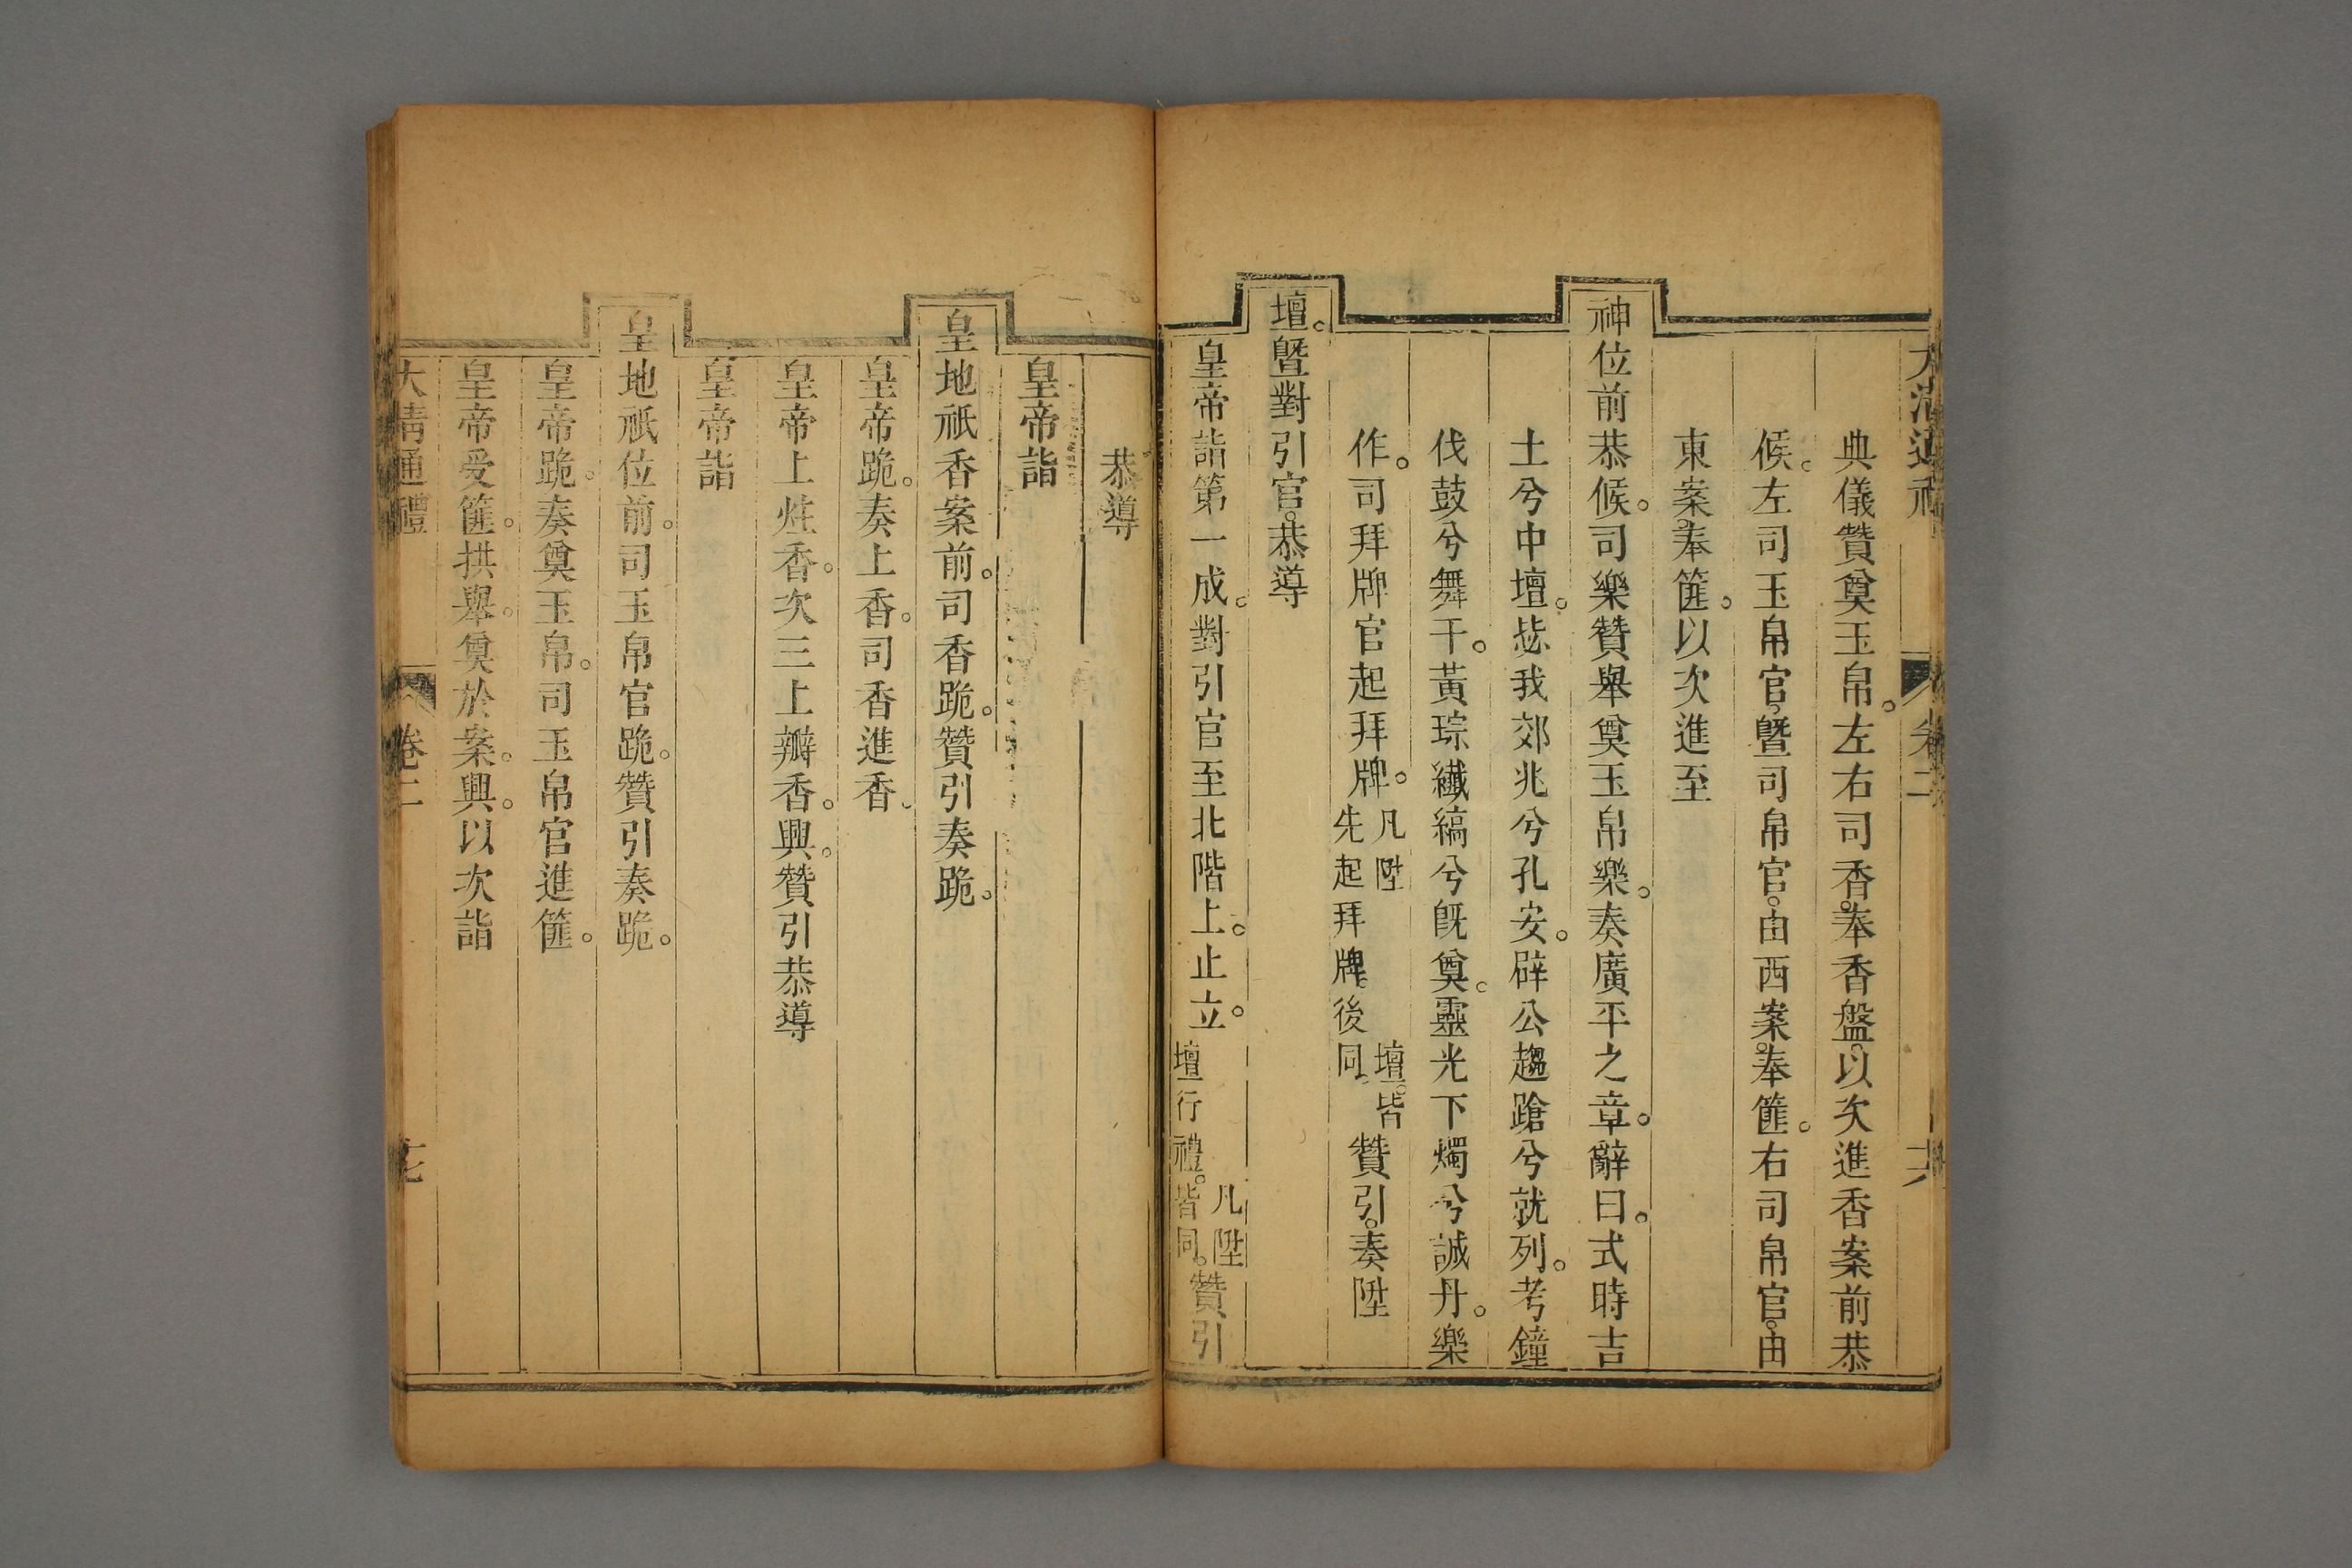 大清通禮 卷二 十六
典儀贊奠玉帛。左右司香。奉香盤。以次進香案前恭
候。左司玉帛官。曁司帛官。由西案。奉篚。右司帛官。由
東案。奉篚。以次進至
神位前恭候。司樂贊舉奠玉帛樂。奏廣平之章。辭曰。式時吉
土兮中壇。毖我郊兆兮孔安。辟公趨蹌兮就列。考鐘
伐鼓兮舞干。黃琮纖縞兮旣奠。靈光下燭兮誠丹。樂
作。司拜牌官起拜牌。凡陞壇。皆先起拜牌。後同。贊引。奏陞
壇。曁對引官。恭導
皇帝詣第一成。對引官至北階上。止立。凡陞壇行禮。皆同。贊引
恭導
皇帝詣
皇地祇香案前。司香跪。贊引奏跪。
皇帝跪。奏上香。司香進香。
皇帝上炷香。次三上瓣香。興。贊引恭導
皇帝詣
皇地祇位前。司玉帛官跪。贊引奏跪。
皇帝跪。奏奠玉帛。司玉帛官進篚。
皇帝受篚。拱舉。奠於案。興。以次詣
大清通禮 卷二 十七